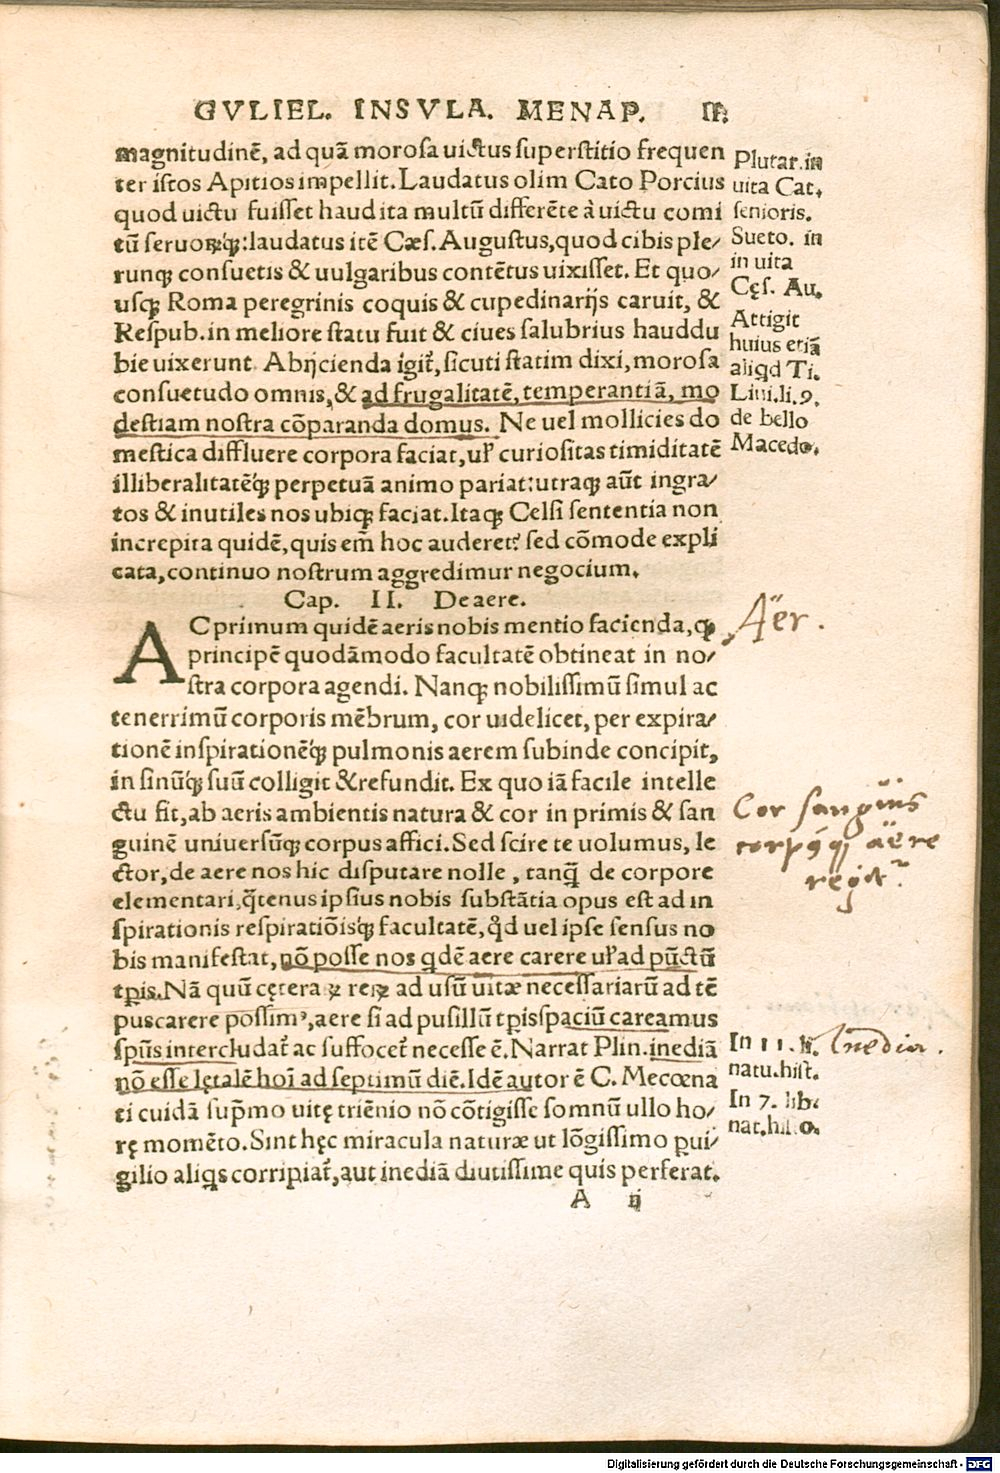 GVLIEL. INSVLA. MENAP. II.
magnitudinē, ad quā morosa uictus superstitio frequen
ter istos Apitios impellit. Laudatus olim Cato Porcius
quod uictu fuisset haud ita multū differēte à uictu comi
tū seruoꝝq́ꝫ: laudatus itē Cæs. Augustus, quod cibis ple⸗
runqꝫ consuetis & uulgaribus contētus uixisset. Et quo⸗
usqꝫ Roma peregrinis coquis & cupedinarijs caruit, &
Respub. in meliore statu fuit & ciues salubrius hauddu
bie uixerunt. Abijcienda igit᷑, sicuti statim dixi, morosa
consuetudo omnis, & ad frugalitatē, temperantiā, mo
destiam nostra cōparanda domus. Ne uel mollicies do
mestica diffluere corpora faciat, ul᷑ curiositas timiditatē
illiberalitatēq́ꝫ perpetuā animo pariat: utraqꝫ aūt ingra⸗
tos & inutiles nos ubiqꝫ faciat. Itaqꝫ Celsi sententia non
increpita quidē, quis em̄ hoc auderet? sed cōmode expli
cata, continuo nostrum aggredimur negocium.
Cap. II. De aere.
AC primum quidē aeris nobis mentio facienda, ꝙ
principē quodāmodo facultatē obtineat in no⸗
stra corpora agendi. Nanqꝫ nobilissimū simul ac
tenerrimū corporis mēbrum, cor uidelicet, per expira⸗
tionē inspirationēq́ꝫ pulmonis aerem subinde concipit,
in sinūq́ꝫ suū colligit & refundit. Ex quo iā facile intelle
ctu fit, ab aeris ambientis natura & cor in primis & san
guinē uniuersūq́ꝫ corpus affici. Sed scire te uolumus, le
ctor, de aere nos hic disputare nolle, tanq̄ de corpore
elementari, q̄tenus ipsius nobis substātia opus est ad in
spirationis respiratiōisq́ꝫ facultatē, qd̓ uel ipse sensus no
bis manifestat, nō posse nos qdē aere carere ul᷑ ad pūctū
tp̄is. Nā quū cętera ꝝ reꝝ ad usū uitæ necessariarū ad tē
pus carere possimꝰ, aere si ad pusillū tp̄is spaciū careamus
sp̄us intercludat᷑ ac suffocet᷑ necesse ē. Narrat Plin. inediā
nō esse lętalē hoī ad septimū diē. Idē autor ē C. Mecœna
ti cuidā sup̄mo uitę triēnio nō cōtigisse somnū ullo ho⸗
rę momēto. Sint hęc miracula naturæ ut lōgissimo ꝑui⸗
gilio aliqs corripiat᷑, aut inediā diutissime quis perferat.
A ij
Plutar. in
uita Cat.
senioris.
Sueto. in
in uita
Cęs. Au.
Attigit
huius etiā
aliqd Ti.
Liui. li. 9.
de bello
Macedo.
Aër.
Cor sanguis
corpꝰqꝫ aëre
regit᷑.
In 11. li.
natu. hist.
Inedia.
In 7. lib.
nat. histo.
Digitalisierung gefördert durch die Deutsche Forschungsgemeinschaft - DFG